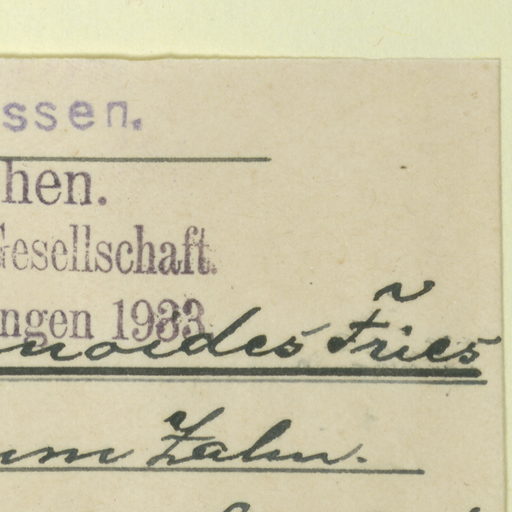 ssen.
hen.
Gesellschaft.
ngen 1933.
noides Fries
um Zahn.